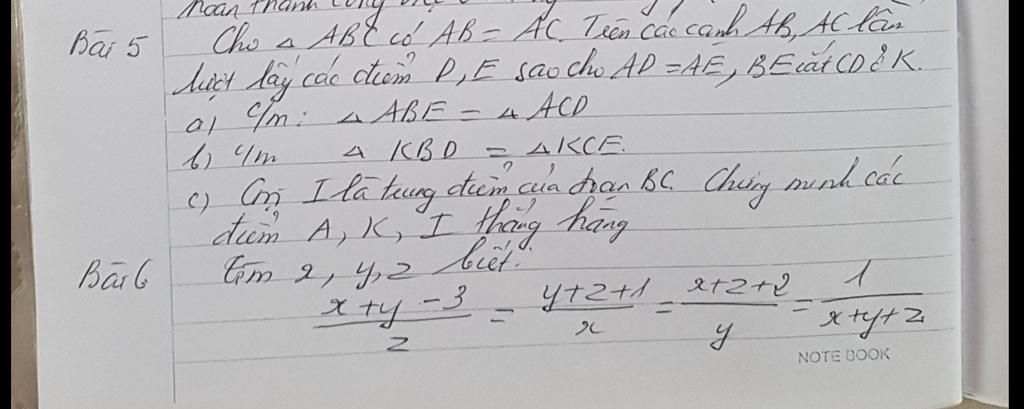 hoàn thành công việc
Bài 5 Cho △ ABC có AB = AC. Trên các cạnh AB, AC lần
lượt lấy các điểm D, E sao cho AD = AE, BE cắt CD ở K.
a) c/m: △ ABE = △ ACD
b) c/m △ KBD = △KCE.
c) Gọi I là trung điểm của đoạn BC. Chứng minh các
điểm A, K, I thẳng hàng
Bài 6 tìm x, y, z biết:
x+y-3/z = y+z+1/x = x+z+2/y = 1/x+y+z
NOTE BOOK